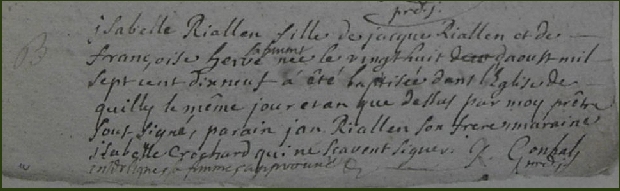 B
isabelle Riallen fille de jacque Riallen et de
françoise hervé sa femme née le vingthuit daoust mil
sept cent dixneuf à été baptisée dans l'Eglise de
quilly le même jour et an que dessus par moy prêtre
sous signé, parain jan Riallen son frere maraine
isabelle Crochard qui ne scavent signer.